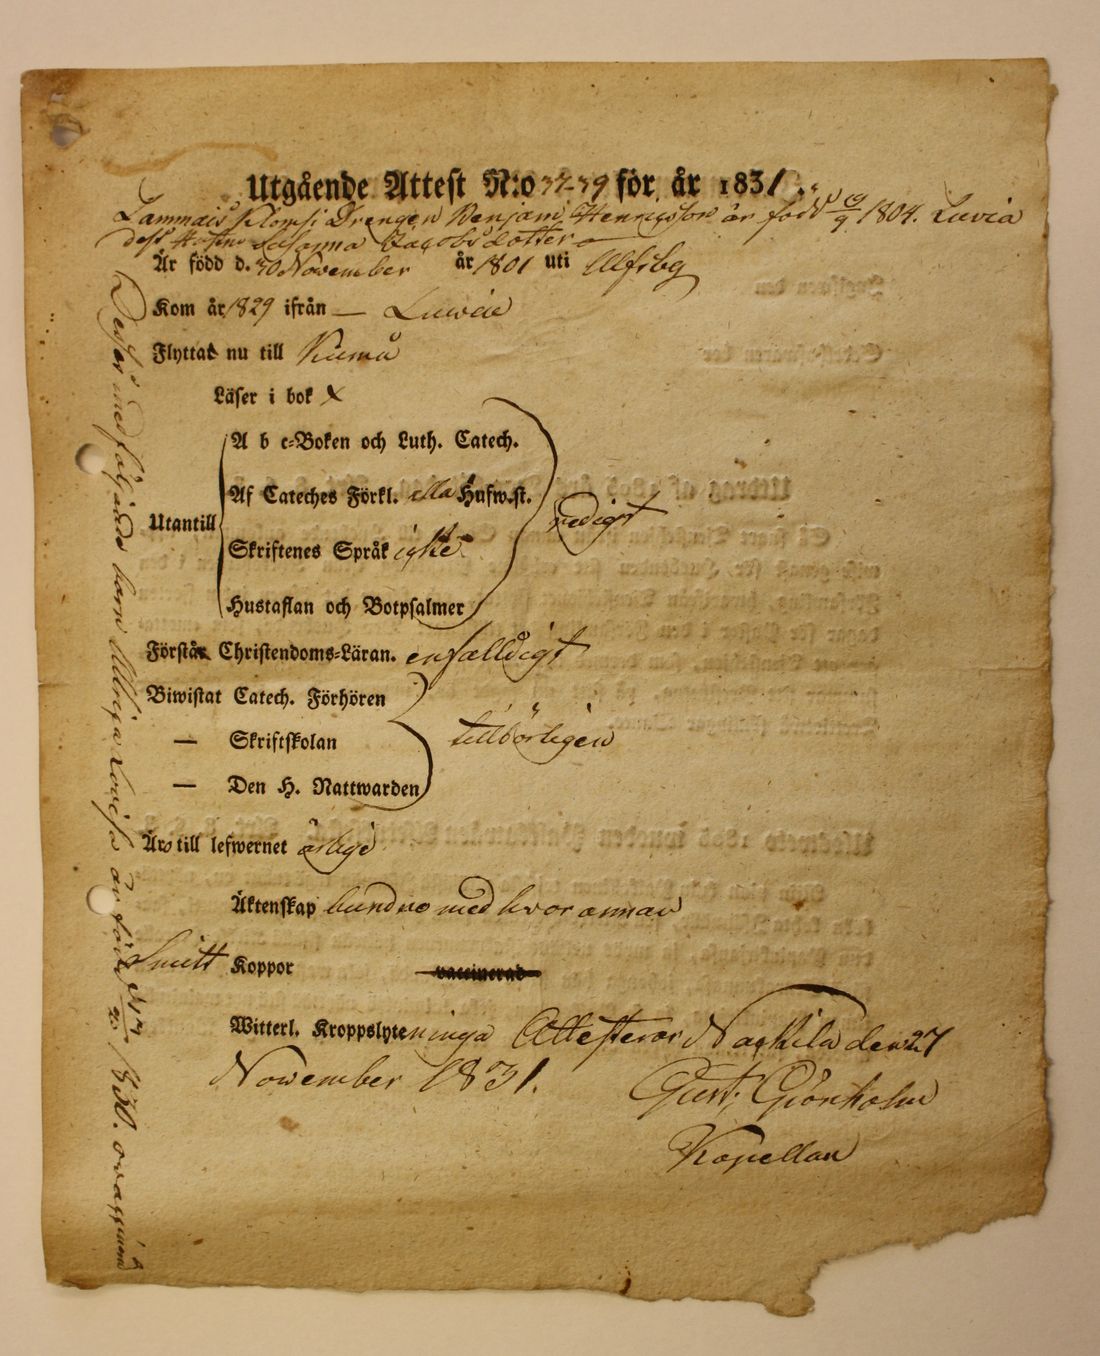 Utgående Attest N:o 37-39 för år 1831.
Lammais Klomsi Drengen Benjam: Henricsson är född d 19/9 1804. Luvia
dess Hustru Susanna Jacobsdotter
Är född d. 30 November år 1801 uti Ulfsbg
Kom år 1829 ifrån — Luwia
Flyttat nu till Kumå
Läser i bok x
A b c-Boken och Luth. Catech.
Af Cateches Förkl. alla Husw.st.
Utantill redigt
Skriftenes Språk icke
Hustaflan och Botpsalmer
Förstår Christendoms-Läran. enfalldigt
Biwistat Catech. Förhören
— Skriftskolan tillbörligen
— Den H. Nattwarden
Äro till lefwernet ärlige
Äktenskap bundne med hvorannan
Smitt Koppor vaccinerad
Witterl. Kroppslyte ninga Attesterar Nackila den 27
November 1831.
Gust. Grönholm
Kapellan
Desse medföljande barn Ulrika Lovisa är född 1830. ovaccinerad